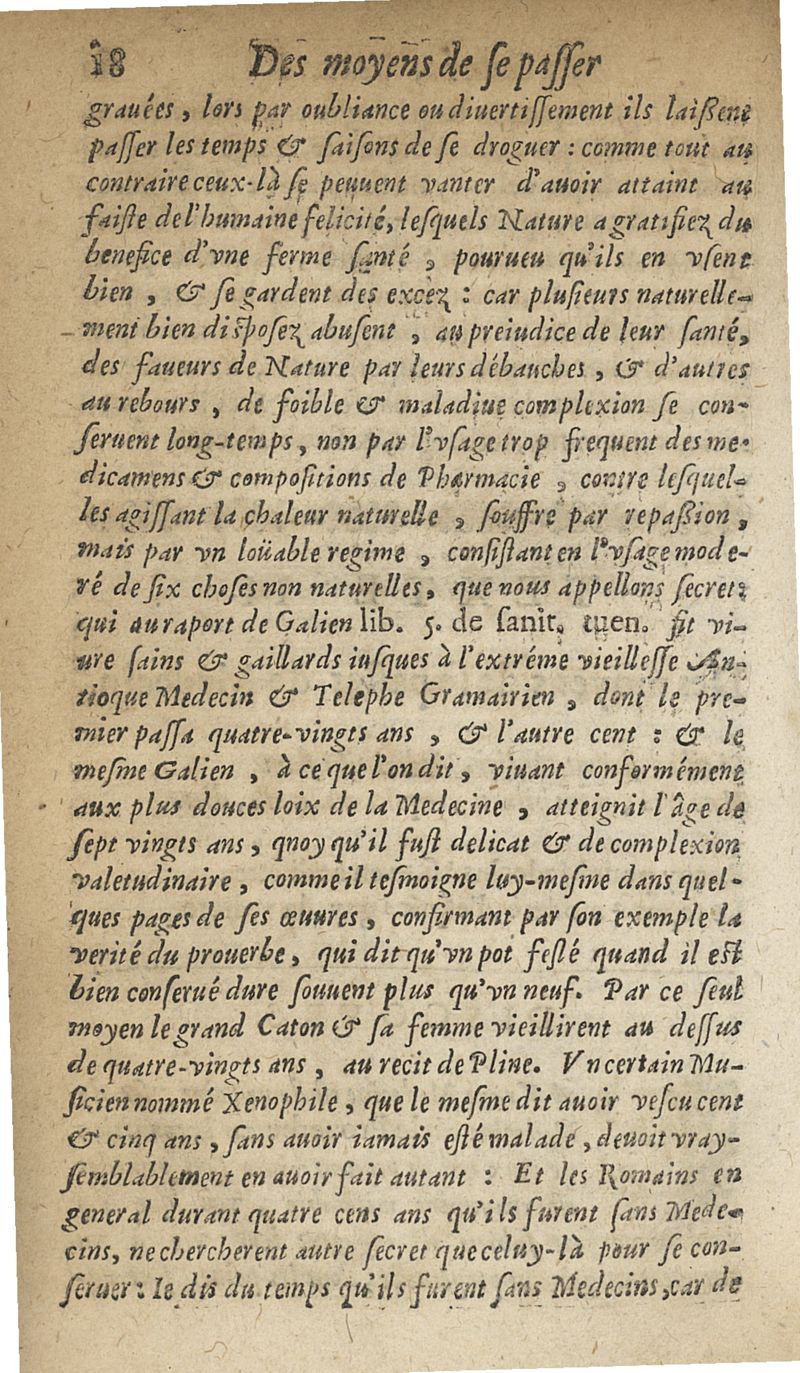 18 Des moyens de ſe paſſer
grauées, lors par oubliance ou diuertiſſement ils laiſſent
paſſer les temps & ſaiſons de ſe droguer : comme tout au
contraire ceux-là ſe peuuent vanter d'auoir attaint au
faiſte de l'humaine felicité, leſquels Nature a gratifiez du
benefice d'vne ferme ſanté, pourueu qu'ils en vſent
bien, & ſe gardent des excez : car pluſieurs naturelle-
ment bien diſpoſez abuſent, au preiudice de leur ſanté,
des faueurs de Nature par leurs débauches, & d'autres
au rebours, de foible & maladiue complexion ſe con-
ſeruent long-temps, non par l'vſage trop frequent des me-
dicamens & compoſitions de Pharmacie, contre leſquel-
les agiſſant la chaleur naturelle, ſouffre par repaſſion,
mais par vn loüable regime, conſiſtant en l'vſage mode-
ré de ſix choſes non naturelles, que nous appellons ſecret:
qui au raport de Galien lib. 5. de ſanit. tuen. fit vi-
ure ſains & gaillards iuſques à l'extréme vieilleſſe An-
tioque Medecin & Telephe Gramairien, dont le pre-
mier paſſa quatre-vingts ans, & l'autre cent : & le
meſme Galien, à ce que l'on dit, viuant conformément
aux plus douces loix de la Medecine, atteignit l'âge de
ſept vingts ans, quoy qu'il fuſt delicat & de complexion
valetudinaire, comme il teſmoigne luy-meſme dans quel-
ques pages de ſes œuures, confirmant par ſon exemple la
verité du prouerbe, qui dit qu'vn pot feſlé quand il eſt
bien conſerué dure ſouuent plus qu'vn neuf. Par ce ſeul
moyen le grand Caton & ſa femme vieillirent au deſſus
de quatre-vingts ans, au recit de Pline. Vn certain Mu-
ſicien nommé Xenophile, que le meſme dit auoir veſcu cent
& cinq ans, ſans auoir iamais eſté malade, deuoit vray-
ſemblablement en auoir fait autant : Et les Romains en
general durant quatre cens ans qu'ils furent ſans Mede-
cins, ne chercherent autre ſecret que celuy-là pour ſe con-
ſeruer : Ie dis du temps qu'ils furent ſans Medecins, car de